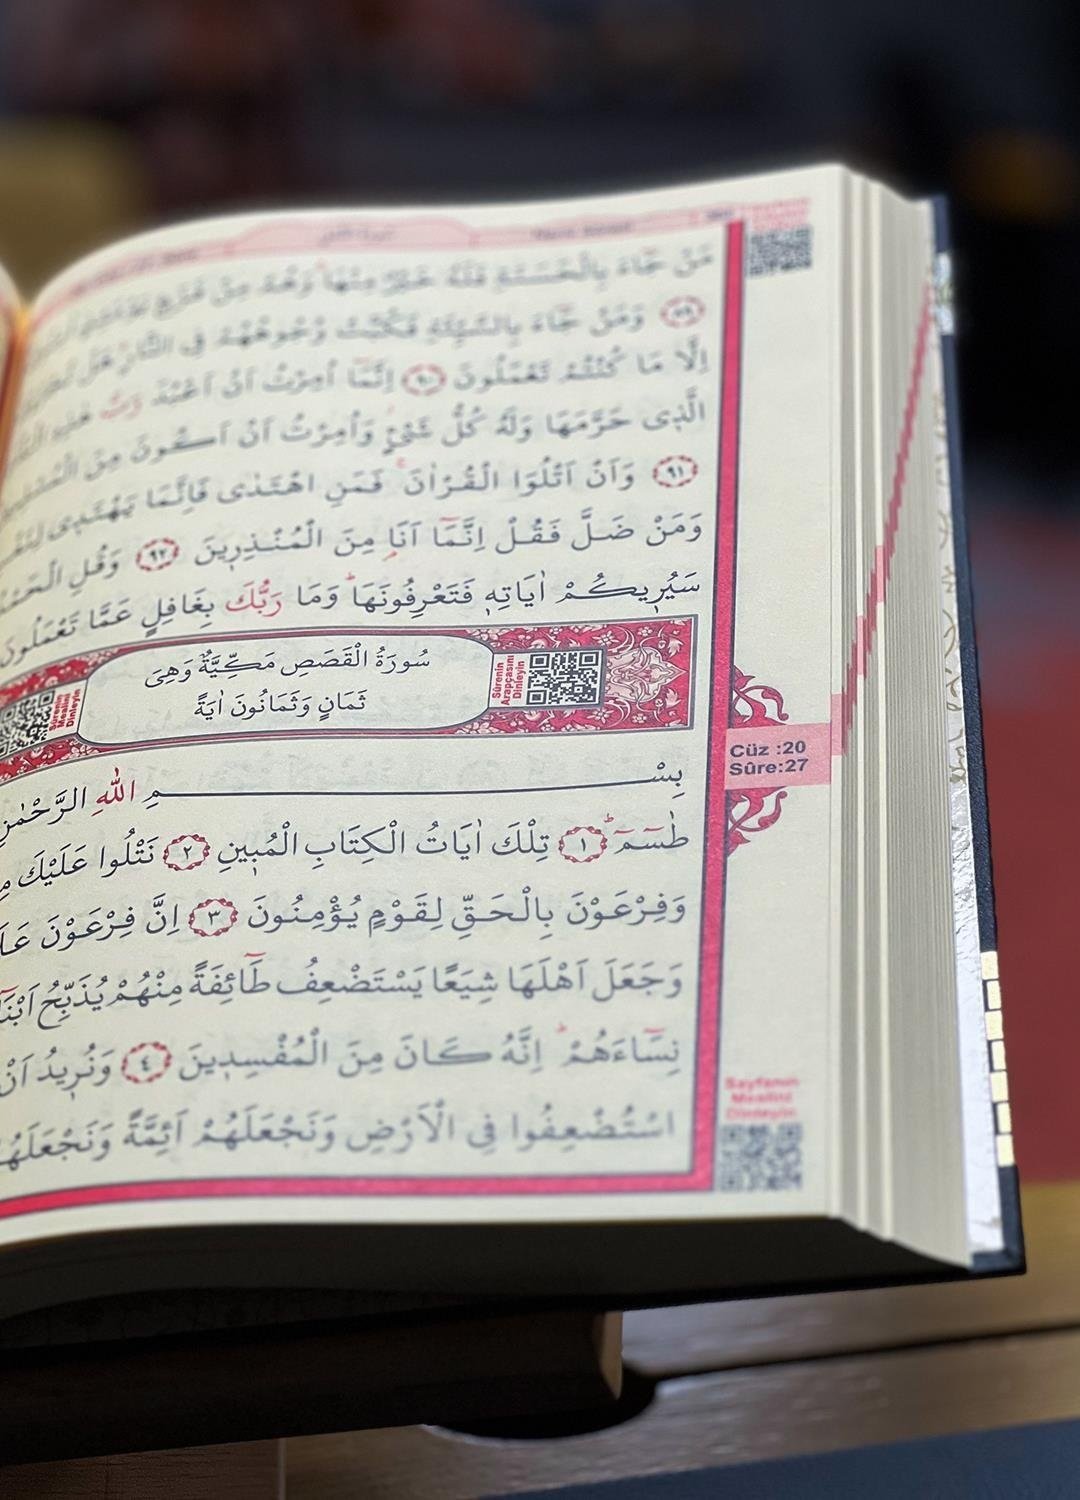 مَنْ جَٓاءَ بِالْحَسَنَةِ فَلَهُ خَيْرٌ مِنْهَا وَهُمْ مِنْ فَزَعٍ يَوْمَئِذٍ
٨٩ وَمَنْ جَٓاءَ بِالسَّيِّئَةِ فَكُبَّتْ وُجُوهُهُمْ فِى النَّارِ هَلْ
اِلَّا مَا كُنْتُمْ تَعْمَلُونَ ٩٠ اِنَّمَٓا اُمِرْتُ اَنْ اَعْبُدَ رَبَّ هٰذِهِ
الَّذٖى حَرَّمَهَا وَلَهُ كُلُّ شَىْءٍ وَاُمِرْتُ اَنْ اَكُونَ مِنَ الْمُسْلِمٖينَ
٩١ وَاَنْ اَتْلُوَا الْقُرْاٰنَ فَمَنِ اهْتَدٰى فَاِنَّمَا يَهْتَدٖى
وَمَنْ ضَلَّ فَقُلْ اِنَّمَٓا اَنَا۬ مِنَ الْمُنْذِرٖينَ ٩٢ وَقُلِ الْحَمْدُ
سَيُرٖيكُمْ اٰيَاتِهٖ فَتَعْرِفُونَهَاؕ وَمَا رَبُّكَ بِغَافِلٍ عَمَّا تَعْمَلُونَ
سُورَةُ الْقَصَصِ مَكِّيَّةٌ وَهِىَ
ثَمَانٍ وَثَمَانُونَ اٰيَةً
Sûrenin
Arapçasını
Dinleyin
Sûrenin
Mealini
Dinleyin
Cüz :20
Sûre:27
بِسْـــــــــمِ اللّٰهِ الرَّحْمٰنِ
طٰسٓمٓؕ ١ تِلْكَ اٰيَاتُ الْكِتَابِ الْمُبٖينِ ٢ نَتْلُوا عَلَيْكَ
وَفِرْعَوْنَ بِالْحَقِّ لِقَوْمٍ يُؤْمِنُونَ ٣ اِنَّ فِرْعَوْنَ
وَجَعَلَ اَهْلَهَا شِيَعًا يَسْتَضْعِفُ طَٓائِفَةً مِنْهُمْ يُذَبِّحُ
نِسَٓاءَهُمْؕ اِنَّهُ كَانَ مِنَ الْمُفْسِدٖينَ ٤ وَنُرٖيدُ اَنْ
اسْتُضْعِفُوا فِى الْاَرْضِ وَنَجْعَلَهُمْ اَئِمَّةً وَنَجْعَلَهُمُ
Sayfanın
Mealini
Dinleyin